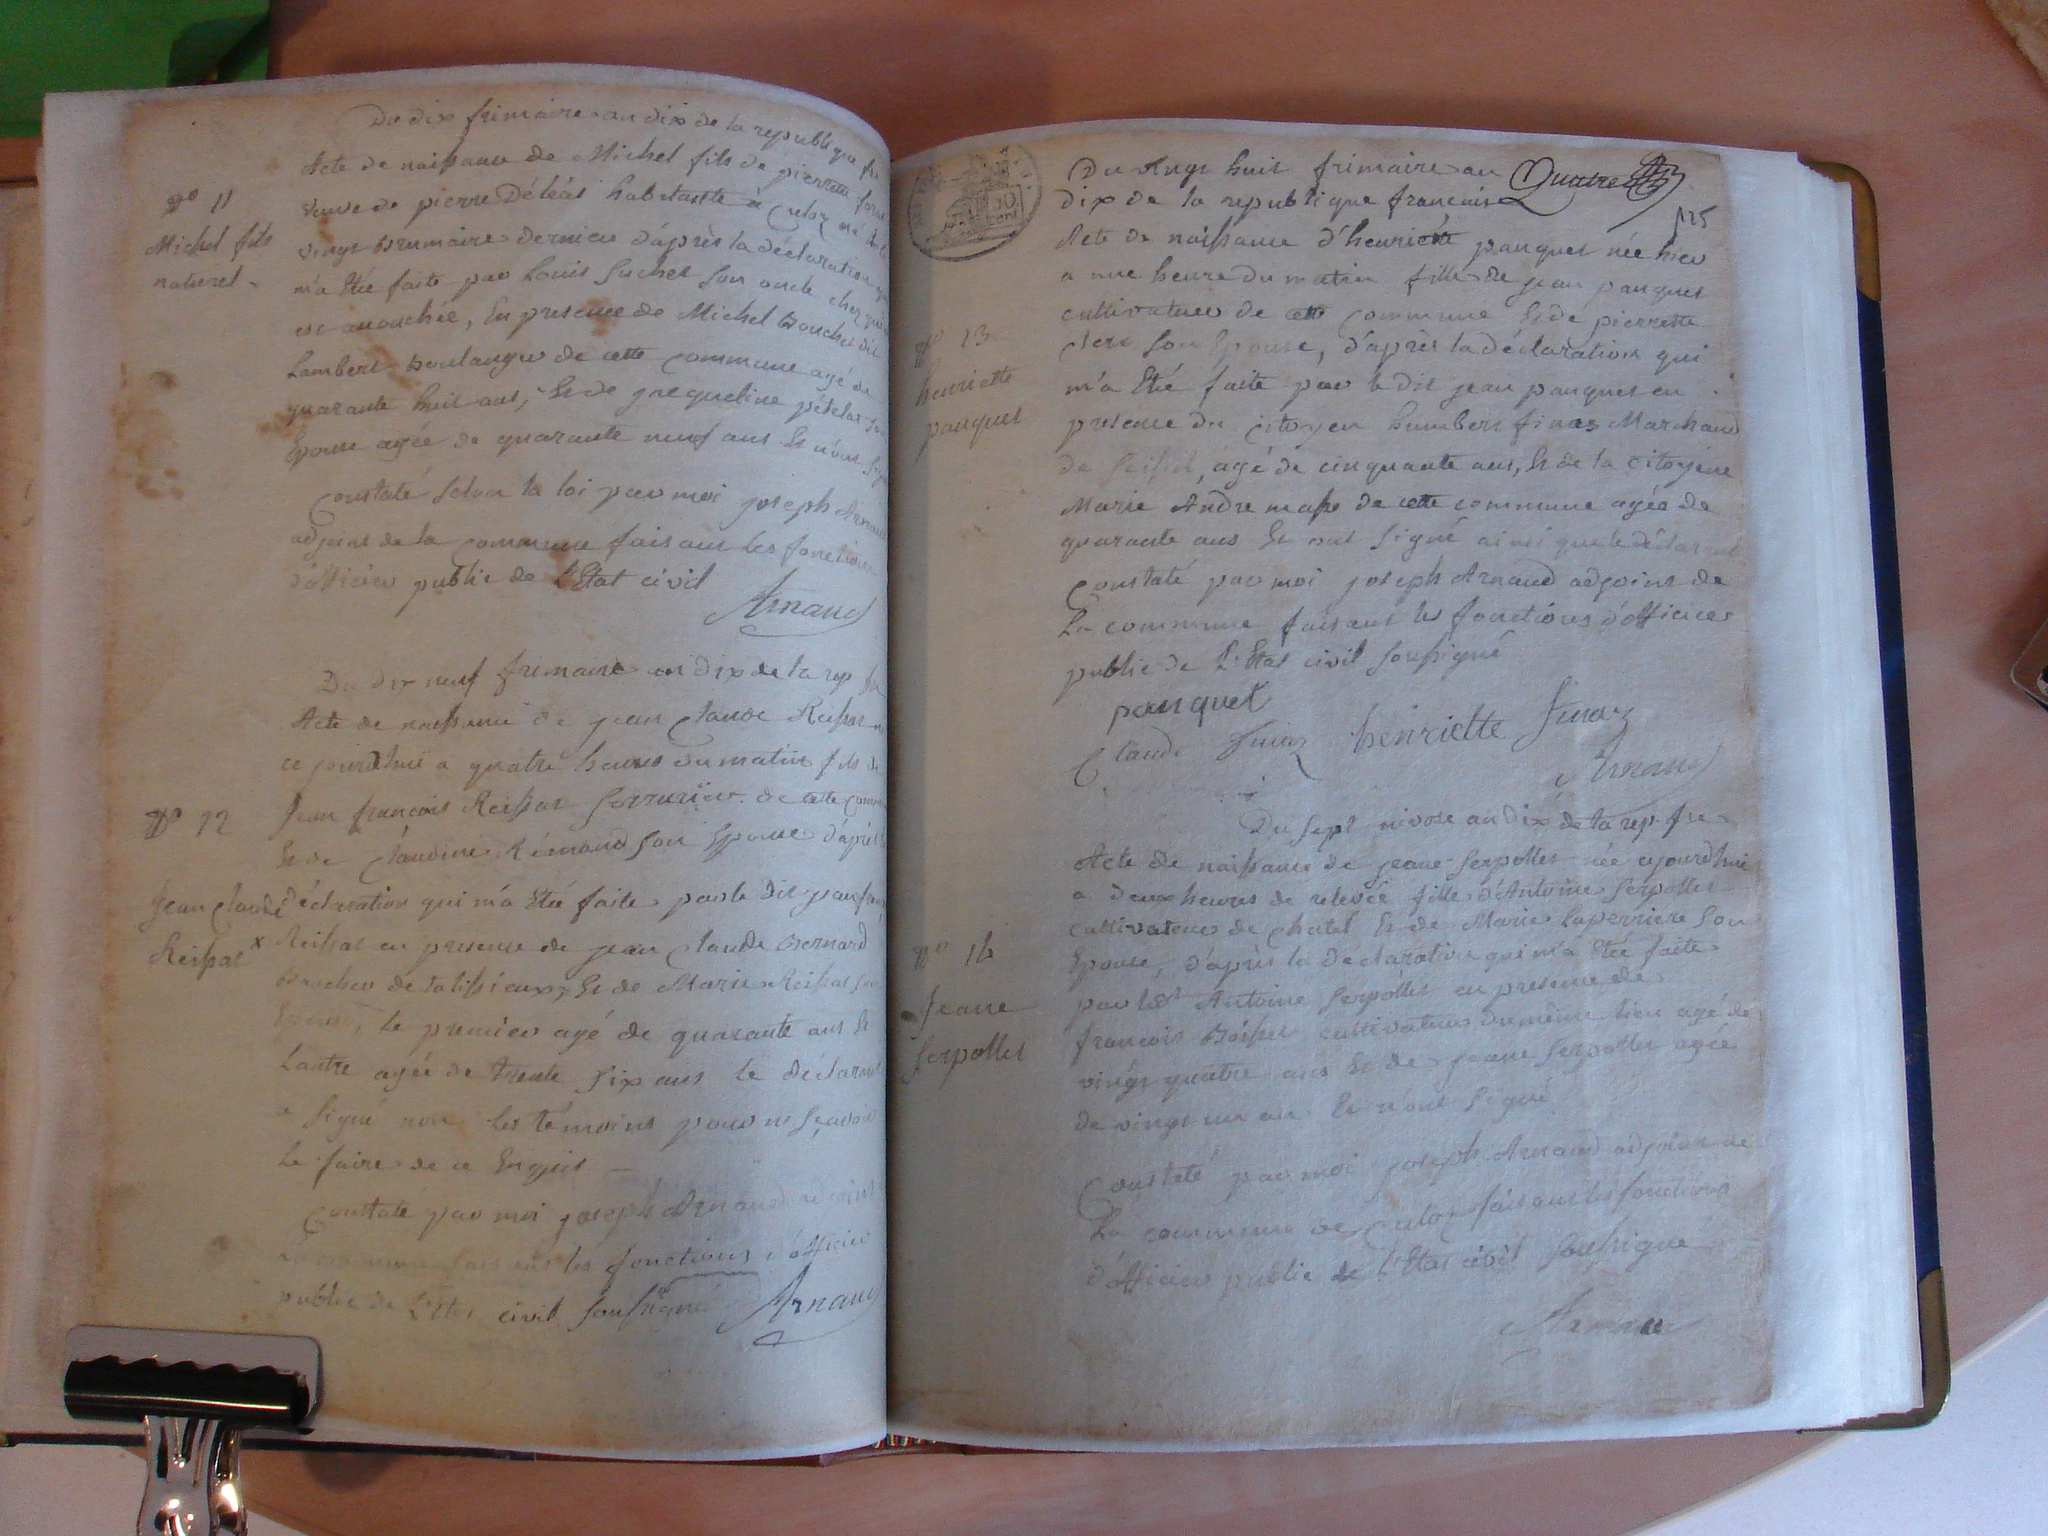 Du dix frimaire an dix de la republique
Acte de naissance de Michel fils de pierrette
veuve de pierre Déléas habitante a Culoz
vingt brumaire dernier d'après la déclaration
m'a Eté faite par Louis Suchet son oncle chez
est acouchée, En presence de Michel Bouchet dit
Lambert boulanger de cette commune agé de
quarante huit ans, Et de jacqueline pételat
Epouse agée de quarante neuf ans Et n'ont
Constaté selon la loi par moi joseph Arnaud
adjoint de la commune faisant les fonctions
d'officier public de L'Etat civil
Arnaud
No 11
Michel fils
naturel
Du dix neuf frimaire an dix de la rep
Acte de naissance de jean Claude Reissat
ce jourdhui a quatre heures du matin fils de
Jean françois Reissat serrurier de cette
Et de Claudine Rémond son Epouse d'après
déclaration qui m'a Eté faite par le dit jean
Reissat en presence de jean Claude Bernard
de talissieux, Et de Marie Reissat
Epouse, le premier agé de quarante ans Et
Lautre agée de trente six ans le déclarant
a signé non les témoins pour ne sçavoir
le faire de ce Enquis
Constaté par moi joseph Arnaud
La commune faisant les fonctions d'officier
public de L'Etat civil soussigné Arnaud
No 12
Jean Claude
Reissat x
Du vingt huit frimaire an
dix de la republique francaise
Quatre
125
Acte de naissance d'henriette panquet née hier
a une heure du matin fille de jean panquet
cultivateur de cette commune Et de pierrette
Clerc son Epouse, d'après la déclaration qui
m'a Eté faite par le dit jean panquet en
presence du citoyen humbert finaz Marchand
de , agé de cinquante ans, Et de la citoyene
Marie Andre masse de cette commune agée de
quarante ans Et ont signé ainsi que le déclarant
Constaté par moi joseph Arnaud adjoint de
La commune faisant les fonctions d'officier
public de L'Etat civil soussigné
panquet
Claude finaz henriette finaz
Arnaud
No 13
henriette
panquet
Du sept nivose an dix de la rep. fre
Acte de naissance de jeane serpollet née cejourdhui
a deux heures de relevée fille d'Antoine serpollet
cultivateur de chatel Et de Marie Laperriere son
Epouse, d'après la déclaration qui m'a Eté faite
par led. Antoine serpollet en presence de
francois cultivateur du même lieu agé de
vingt quatre ans Et de jeane serpollet agée
de vingt un an Et n'ont signé
Constaté par moi joseph Arnaud adjoint de
La commune de Culoz faisant les fonctions
d'officier public de L'Etat civil soussigné
Arnaud
No 14
Jeane
serpollet